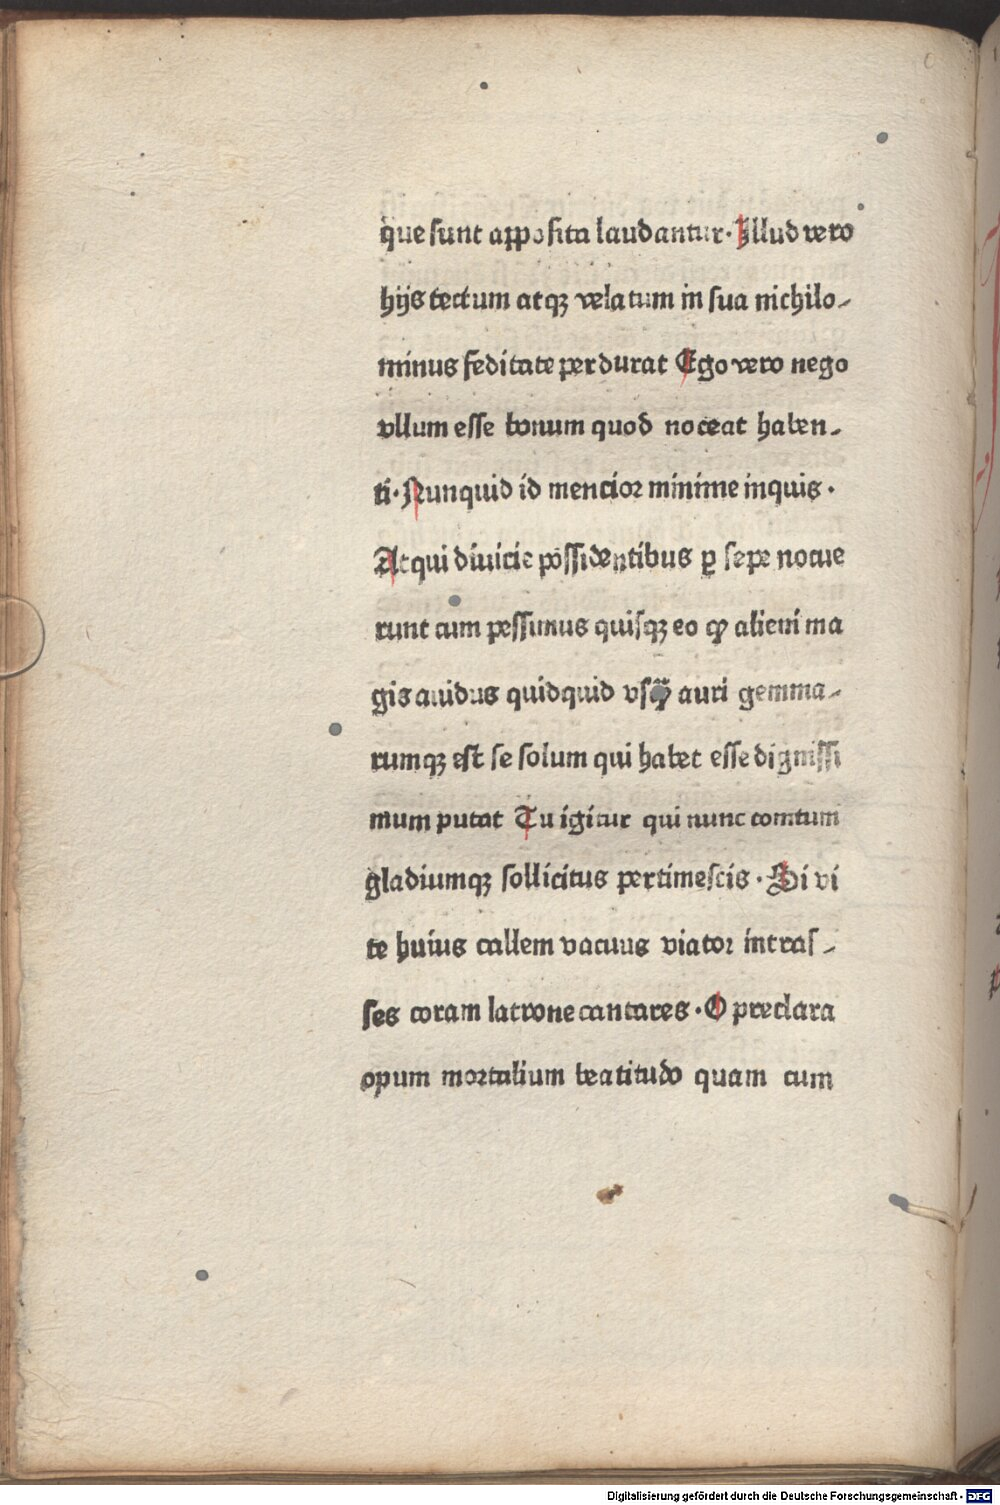 que sunt apposita laudantur· Illud vero
hijs tectum atqꝫ velatum in sua nichilo-
minus feditate perdurat Ego vero nego
vllum esse bonum quod noceat haben-
ti· Nunquid id mencior minime inquis·
Atqui diuicie possidentibus ꝑ sepe nocue
runt cum pessimus quisqꝫ eo ꝙ alieni ma
gis auidus quidquid vsꝙ̃ auri gemma-
rumqꝫ est se solum qui habet esse dignissi
mum putat Tu igitur qui nunc contum
gladiumqꝫ sollicitus pertimescis· Si vi
te huius callem vacuus viator intras-
ses coram latrone cantares· O preclara
opum mortalium beatitudo quam cum
Digitalisierung gefördert durch die Deutsche Forschungsgemeinschaft - DFG